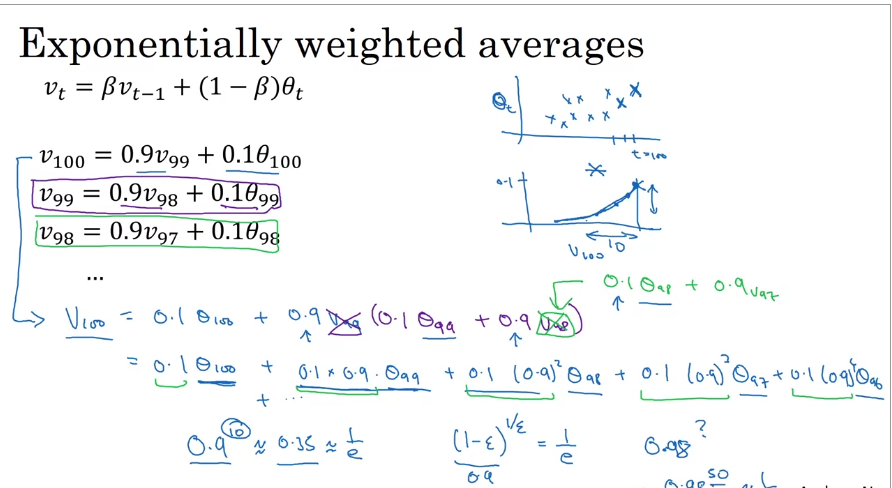 Exponentially weighted averages
v_t = βv_{t−1} + (1 − β)θ_t
v_100 = 0.9v_99 + 0.1θ_100
v_99 = 0.9v_98 + 0.1θ_99
v_98 = 0.9v_97 + 0.1θ_98
...
θ_t
t=100
0.1
V_100
10
0.1 θ_98 + 0.9 V_97
V_100 = 0.1 θ_100 + 0.9 V_99 (0.1 θ_99 + 0.9 V_98)
= 0.1 θ_100 + 0.1 × 0.9 · θ_99 + 0.1 (0.9)² θ_98 + 0.1 (0.9)³ θ_97 + 0.1 (0.9)⁴ θ_96
+ ...
0.9^10 ≈ 0.35 ≈ 1/e (1−ε)^{1/ε} = 1/e 0.98^?
0.9
0.98^50